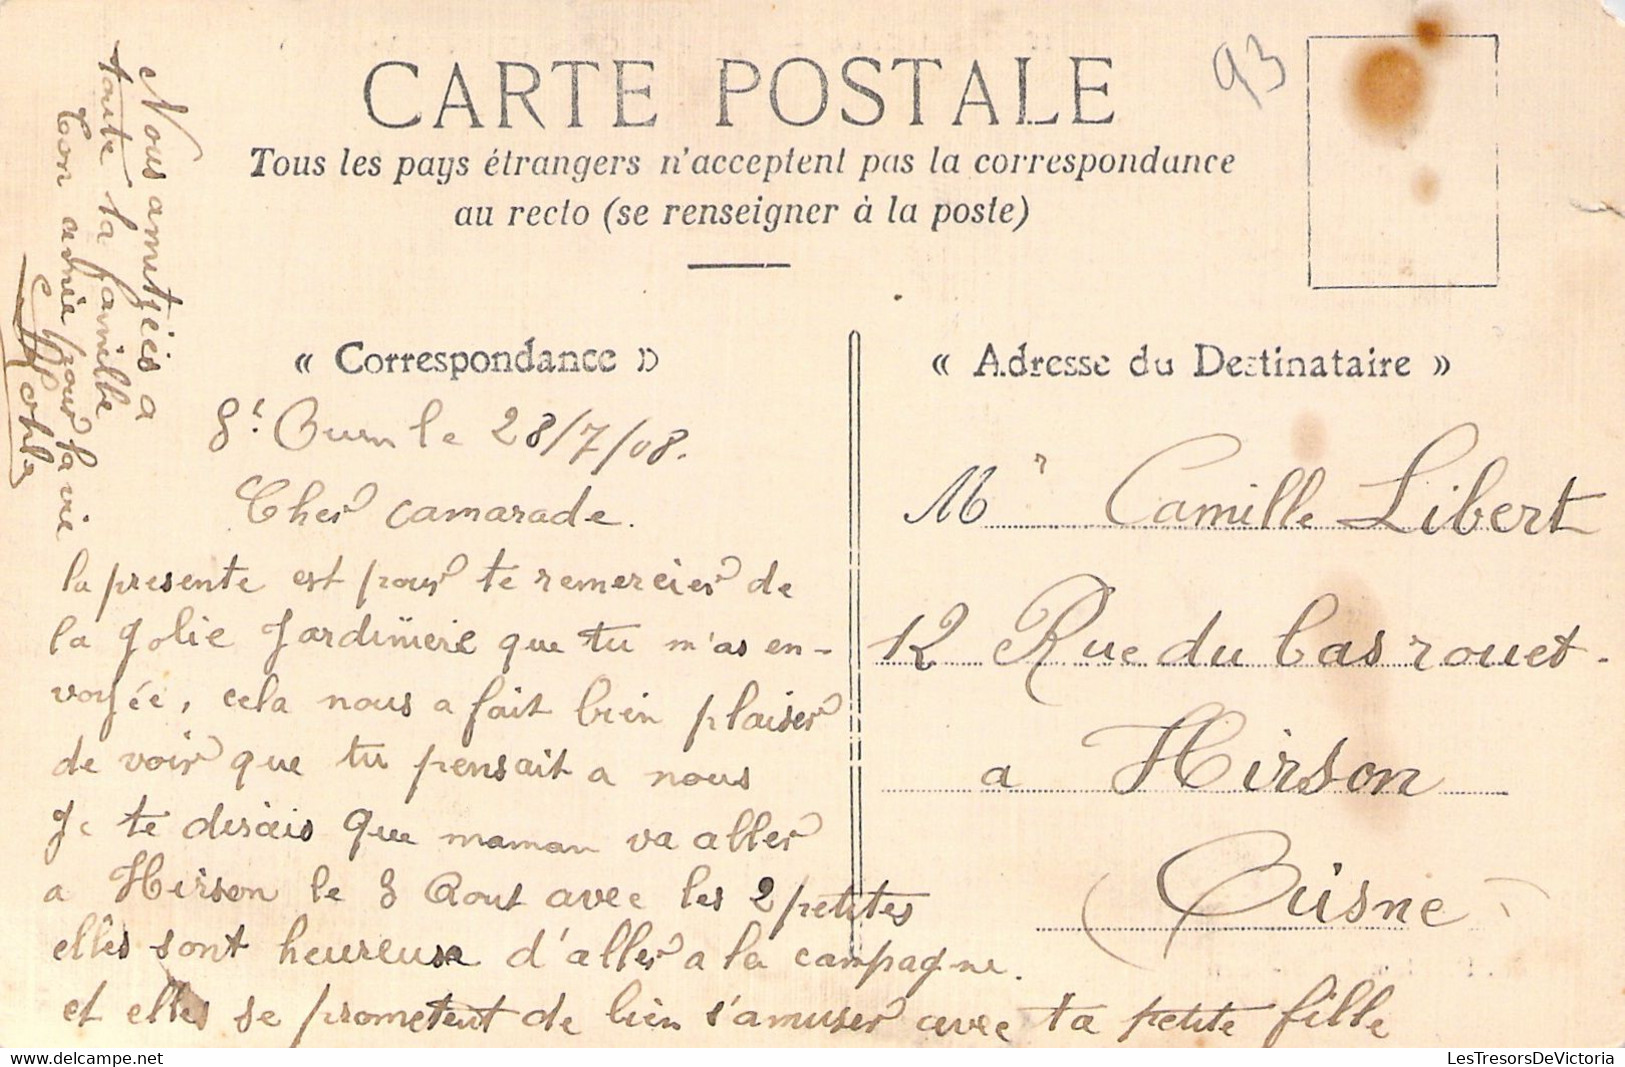 CARTE POSTALE
93
Tous les pays étrangers n'acceptent pas la correspondance
au recto (se renseigner à la poste)
« Correspondance »
St Ouen le 28/7/08.
Cher camarade.
la presente est pour te remercier de
la jolie Jardinière que tu m'as en-
voyée, cela nous a fait bien plaiser
de voir que tu pensait a nous
Je te dirais que maman va aller
a Hirson le 8 Aout avec les 2 petites
elles sont heureuse d'aller a la campagne.
et elles se prometent de bien s'amuser avec ta petite fille
Nous amitiées a
toute la famille
Ton amie pour la vie
« Adresse du Destinataire »
Mr Camille Libert
12 Rue du Cas rouet.
a Hirson
(Aisne)
LesTresorsDeVictoria